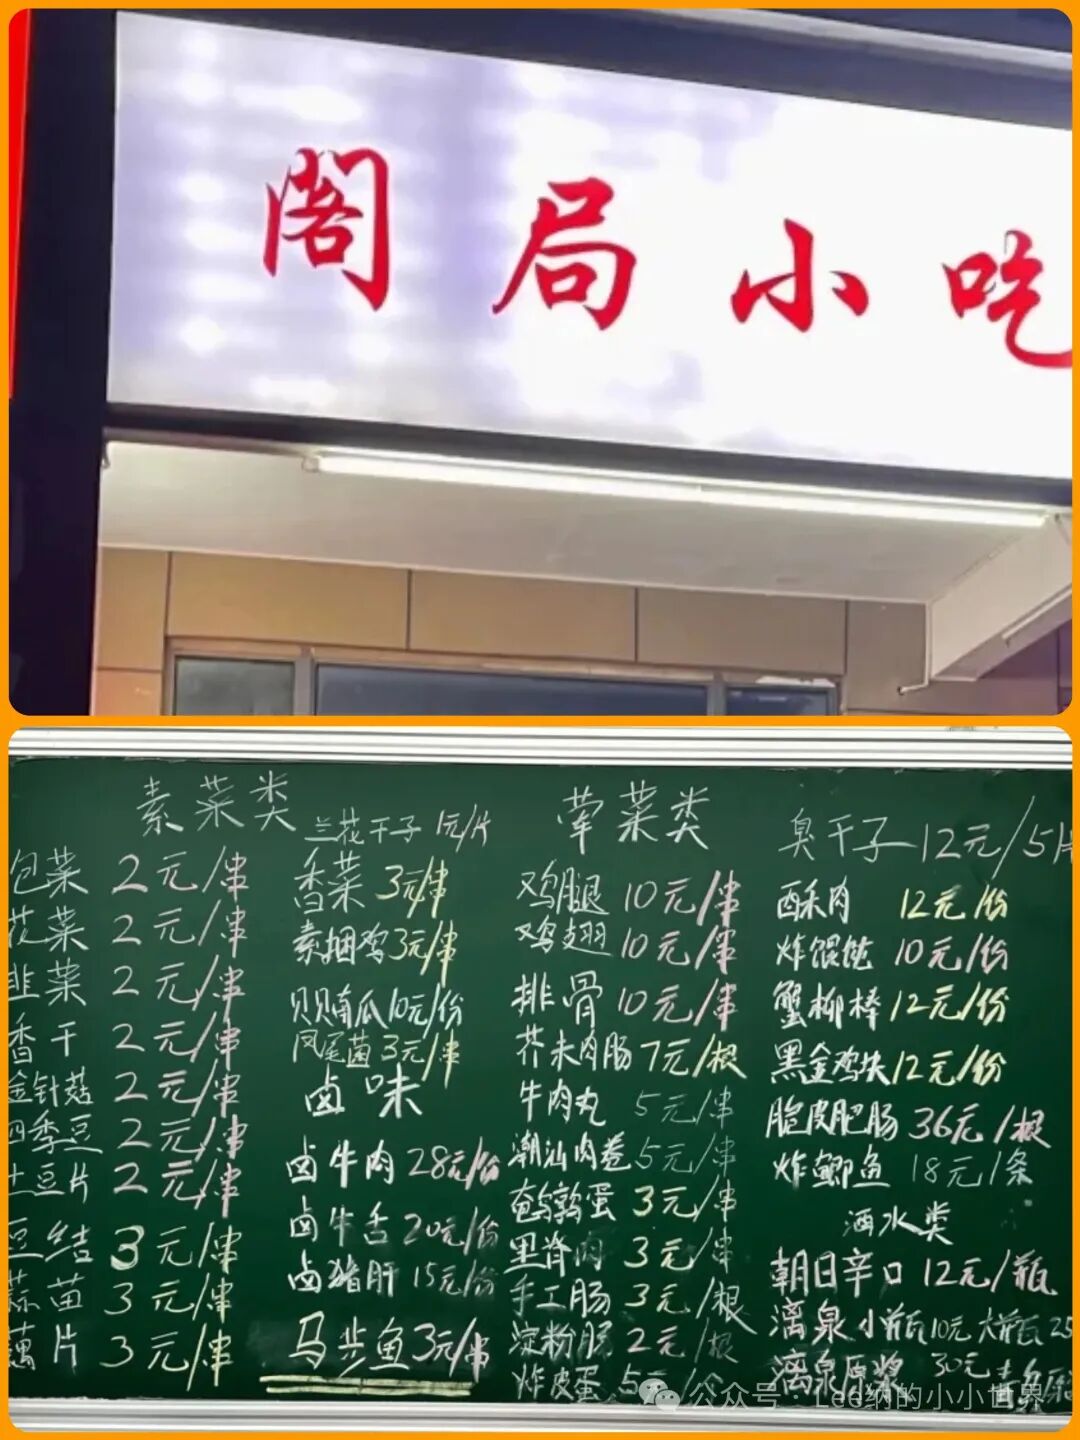 阁局小吃
素菜类
包菜 2元/串
花菜 2元/串
韭菜 2元/串
香干 2元/串
金针菇 2元/串
四季豆 2元/串
土豆片 2元/串
豆结 3元/串
蒜苗 3元/串
藕片 3元/串
兰花干子 1元/片
香菜 3元/串
素捆鸡 3元/串
贝贝南瓜 10元/份
凤尾菌 3元/串
卤味
卤牛肉 28元/份
卤牛舌 20元/份
卤猪肝 15元/份
马步鱼 3元/串
荤菜类
鸡腿 10元/串
鸡翅 10元/串
排骨 10元/串
芥末肉肠 7元/根
牛肉丸 5元/串
潮汕肉卷 5元/串
鹌鹑蛋 3元/串
里脊肉 3元/串
手工肠 3元/根
淀粉肠 2元/根
炸皮蛋 5元/个
臭干子 12元/5片
酥肉 12元/份
炸馄饨 10元/份
蟹柳棒 12元/份
黑金鸡块 12元/份
脆皮肥肠 36元/根
炸鲫鱼 18元/条
酒水类
朝日辛口 12元/瓶
漓泉小瓶10元 大瓶25
漓泉原浆 30元
公众号 · Lee纳的小小世界